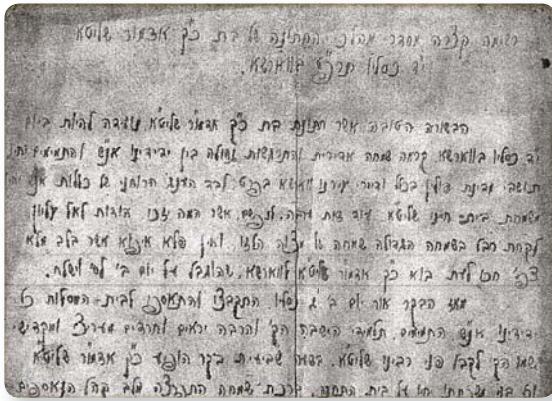 רשימה קצרה מסדר מהלך החתונה של בת כ"ק אדמו"ר שליט"א
י"ד כסליו תרפ"ט בווארשא.
הבשורה הטובה אשר חתונת בת כ"ק אדמו"ר שליט"א נועדה להיות ביום
י"ד כסליו בווארשא, קראה שמחה אדירית והתרגשות גדולה בין ידידינו אנ"ש והתמימים יחיו
תושבי מדינת פולין בכלל ודיירי עירנו ווארשא בפרט לבד העונג הרוחני של כללות אנ"ש יחיו
משמחת בית חיינו שליט"א עוד זאת אשר המה יזכו עודות לאל עליון
לקחת חבל בשמחה הגדולה שמחה של מצוה הלזו. ואין פלא איפוא אשר בלב מלא
חכו לעת בוא כ"ק אדמו"ר שליט"א לווארשא, שהוגבל על יום ב' לפ' וישלח.
מאז הבקר אור יום ב' ג' כסליו התקבצו והתאספו לבית המסלות כל
ידידינו אנ"ש התמימים, תלמידי הישיבה הק' והרבה יראים וחרדים מעריצי ומקדישי
שמו הק' לקבל פני רבינו שליט"א. בשעה שביעית בקר הופיע כ"ק אדמו"ר שליט"א
על בית התחנה. ברכת שמחה התפרצה מלב קהל הנאספים